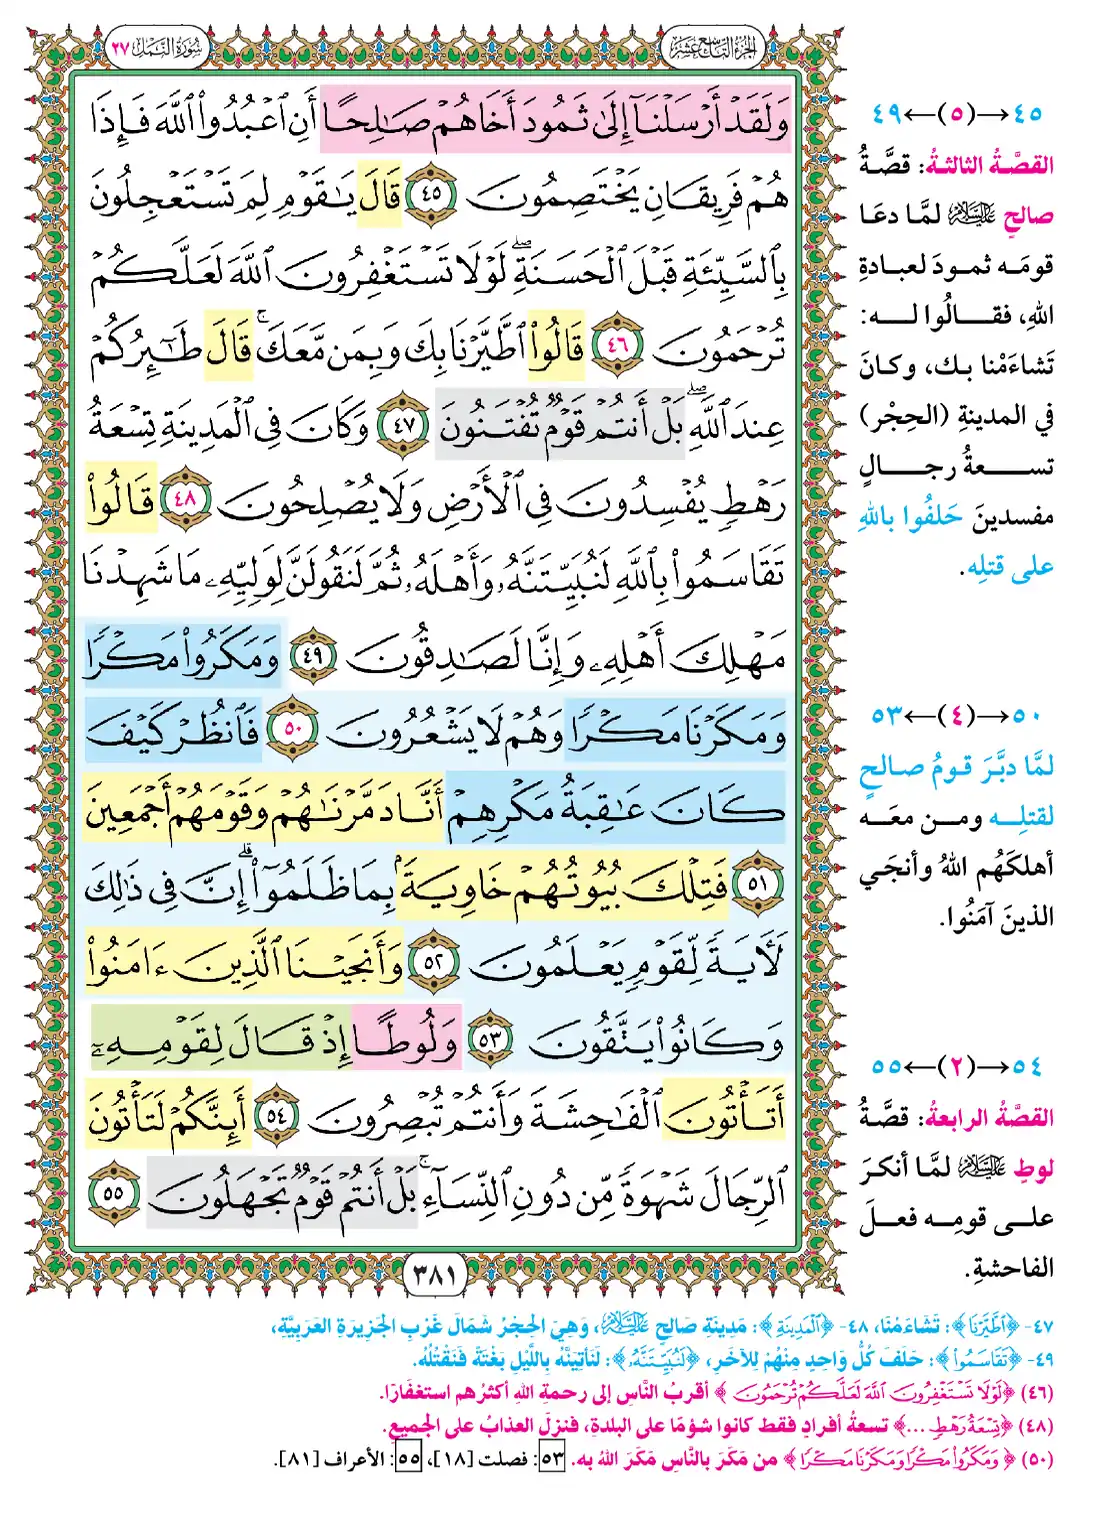 الجزء التاسع عشر
سورة النمل ٢٧
وَلَقَدْ أَرْسَلْنَآ إِلَىٰ ثَمُودَ أَخَاهُمْ صَـٰلِحًا أَنِ ٱعْبُدُوا۟ ٱللَّهَ فَإِذَا
هُمْ فَرِيقَانِ يَخْتَصِمُونَ ٤٥ قَالَ يَـٰقَوْمِ لِمَ تَسْتَعْجِلُونَ
بِٱلسَّيِّئَةِ قَبْلَ ٱلْحَسَنَةِ ۖ لَوْلَا تَسْتَغْفِرُونَ ٱللَّهَ لَعَلَّكُمْ
تُرْحَمُونَ ٤٦ قَالُوا۟ ٱطَّيَّرْنَا بِكَ وَبِمَن مَّعَكَ ۚ قَالَ طَـٰٓئِرُكُمْ
عِندَ ٱللَّهِ ۖ بَلْ أَنتُمْ قَوْمٌ تُفْتَنُونَ ٤٧ وَكَانَ فِى ٱلْمَدِينَةِ تِسْعَةُ
رَهْطٍ يُفْسِدُونَ فِى ٱلْأَرْضِ وَلَا يُصْلِحُونَ ٤٨ قَالُوا۟
تَقَاسَمُوا۟ بِٱللَّهِ لَنُبَيِّتَنَّهُۥ وَأَهْلَهُۥ ثُمَّ لَنَقُولَنَّ لِوَلِيِّهِۦ مَا شَهِدْنَا
مَهْلِكَ أَهْلِهِۦ وَإِنَّا لَصَـٰدِقُونَ ٤٩ وَمَكَرُوا۟ مَكْرًا
وَمَكَرْنَا مَكْرًا وَهُمْ لَا يَشْعُرُونَ ٥٠ فَٱنظُرْ كَيْفَ
كَانَ عَـٰقِبَةُ مَكْرِهِمْ أَنَّا دَمَّرْنَـٰهُمْ وَقَوْمَهُمْ أَجْمَعِينَ
٥١ فَتِلْكَ بُيُوتُهُمْ خَاوِيَةًۢ بِمَا ظَلَمُوٓا۟ ۗ إِنَّ فِى ذَٰلِكَ
لَـَٔايَةً لِّقَوْمٍ يَعْلَمُونَ ٥٢ وَأَنجَيْنَا ٱلَّذِينَ ءَامَنُوا۟
وَكَانُوا۟ يَتَّقُونَ ٥٣ وَلُوطًا إِذْ قَالَ لِقَوْمِهِۦٓ
أَتَأْتُونَ ٱلْفَـٰحِشَةَ وَأَنتُمْ تُبْصِرُونَ ٥٤ أَئِنَّكُمْ لَتَأْتُونَ
ٱلرِّجَالَ شَهْوَةً مِّن دُونِ ٱلنِّسَآءِ ۚ بَلْ أَنتُمْ قَوْمٌ تَجْهَلُونَ ٥٥
٣٨١
٤٥→(٥)←٤٩
القصَّةُ الثالثةُ: قصَّةُ
صالحٍ عليه السلام لمَّا دعَا
قومَه ثمودَ لعبادةِ
اللهِ، فقالُوا له:
تَشاءَمْنا بك، وكانَ
في المدينةِ (الحِجْر)
تسعةُ رجالٍ
مفسدينَ حَلفُوا باللهِ
على قتلِه.
٥٠→(٤)←٥٣
لمَّا دبَّرَ قومُ صالحٍ
لقتلِه ومن معَه
أهلكَهُم اللهُ وأنجَى
الذينَ آمَنُوا.
٥٤→(٢)←٥٥
القصَّةُ الرابعةُ: قصَّةُ
لوطٍ عليه السلام لمَّا أنكرَ
على قومِه فعلَ
الفاحشةِ.
٤٧- ﴿ٱطَّيَّرْنَا﴾: تَشَاءَمْنَا، ٤٨- ﴿ٱلْمَدِينَةِ﴾: مَدِينَةِ صَالِحٍ عليه السلام، وَهِيَ الحِجْرُ شَمَالَ غَرْبِ الجَزِيرَةِ العَرَبِيَّةِ،
٤٩- ﴿تَقَاسَمُوا۟﴾: حَلَفَ كُلُّ وَاحِدٍ مِنْهُمْ لِلآخَرِ، ﴿لَنُبَيِّتَنَّهُۥ﴾: لَنَأْتِيَنَّهُ بِاللَّيْلِ بَغْتَةً فَنَقْتُلُهُ.
(٤٦) ﴿لَوْلَا تَسْتَغْفِرُونَ ٱللَّهَ لَعَلَّكُمْ تُرْحَمُونَ﴾ أقربُ النَّاسِ إلى رحمةِ اللهِ أكثرُهم استغفَارًا.
(٤٨) ﴿تِسْعَةُ رَهْطٍ ...﴾ تسعةُ أفرادٍ فقط كانوا شؤمًا على البلدةِ، فنزلَ العذابُ على الجميعِ.
(٥٠) ﴿وَمَكَرُوا۟ مَكْرًا وَمَكَرْنَا مَكْرًا﴾ من مكَرَ بالنَّاسِ مَكَرَ اللهُ به. ٥٣: فصلت [١٨]، ٥٥: الأعراف [٨١].